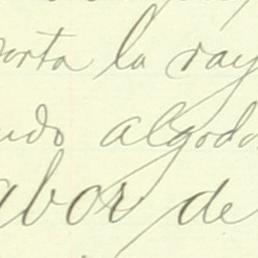 orta la ray
ndo algodo
abor de